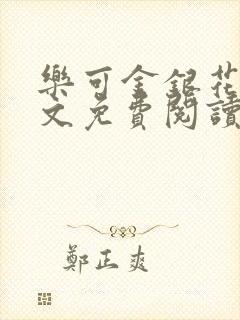 樂可金銀花
文免費閱讀
鄭正爽